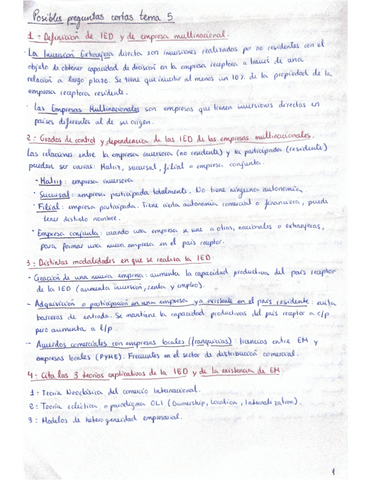 Posibles preguntas cortas tema 5
1 - Definición de IED y de empresa multinacional.
- La Inversión Extranjera directa son inversiones realizadas por no residentes con el
objeto de obtener capacidad de decisión en la empresa receptora a través de una
relación a largo plazo. Se tiene que invertir al menos un 10% de la propiedad de la
empresa receptora residente.
- Las Empresas Multinacionales son empresas que tienen inversiones directas en
países diferentes al de su origen.
2 - Grados de control y dependencia de las IED de las empresas multinacionales.
Las relaciones entre la empresa inversora (no residente) y la participada (residente)
pueden ser varias: Matriz, sucursal, filial o empresa conjunta.
- Matriz: empresa inversora
- Sucursal: empresa participada totalmente. No tiene ninguna autonomía
- Filial: empresa participada. Tiene cierta autonomía comercial o financiera, puede
tener distinto nombre.
- Empresa conjunta: cuando una empresa se une a otras, nacionales o extranjeras,
para formar una nueva empresa en el país receptor.
3 - Distintas modalidades en que se realiza la IED:
- Creación de una nueva empresa: aumenta la capacidad productiva del país receptor
de la IED (aumenta inversión, renta y empleo).
- Adquisición o participación en una empresa ya existente en el país residente: evita
barreras de entrada. Se mantiene la capacidad productiva del país receptor a c/p
pero aumenta a l/p.
- Acuerdos comerciales con empresas locales (franquicias): financieros entre EM y
empresas locales (PYME). Frecuentes en el sector de distribución comercial.
4 - Cita las 3 teorías explicativas de la IED y de la existencia de EM
1: Teoría Neoclásica del comercio Internacional.
2: Teoría ecléctica o paradigma OLI (Ownership, Location, Internalization).
3: Modelos de heterogeneidad empresarial.
1